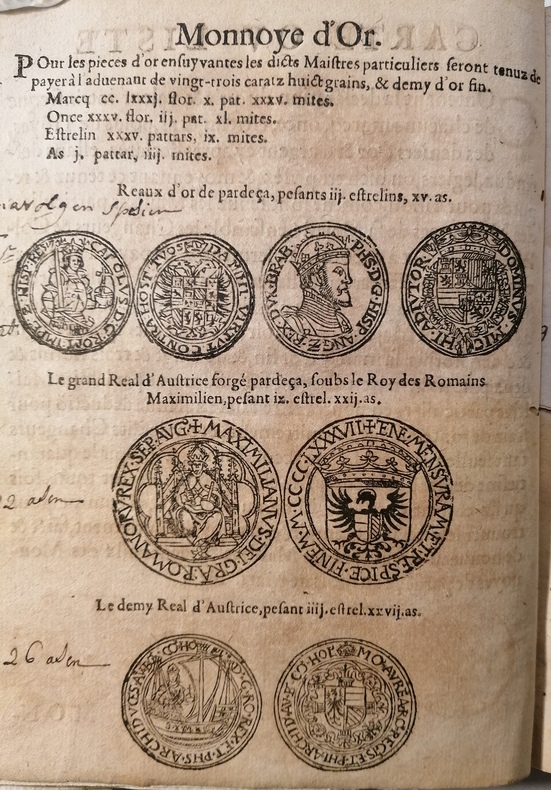 Monnoye d'Or.
POur les pieces d'or ensuyvantes les dicts Maistres particuliers seront tenuz de
payer à l aduenant de vingt-trois caratz huict grains, & demy d'or fin.
Marcq cc. lxxxj. flor. x. pat. xxxv. mites.
Once xxxv. flor. iij. pat. xl. mites.
Estrelin xxxv. pattars, ix. mites.
As j. pattar, iiij. mites.
Reaux d'or de pardeça, pesants iij. estrelins, xv. as.
CAROLVS D: G: ROM: IMP: Z: HISP. REX
DA MIHI VIRTVT CONTRA HOST TVOS
PHS: D: G: HISP ANG: Z: REX DVX BRAB
DOMINVS MICHI ADIVTOR
Le grand Real d'Austrice forgé pardeça, soubs le Roy des Romains
Maximilien, pesant ix. estrel. xxij. as.
MAXIMILIANVS DEI GRA ROMANORV REX SEP AVG
TENE MENSVRAM ET RESPICE FINEM M CCCC LXXXVII
Le demy Real d'Austrice, pesant iiij. estrel. xxvij. as.
2 asen
26 asen